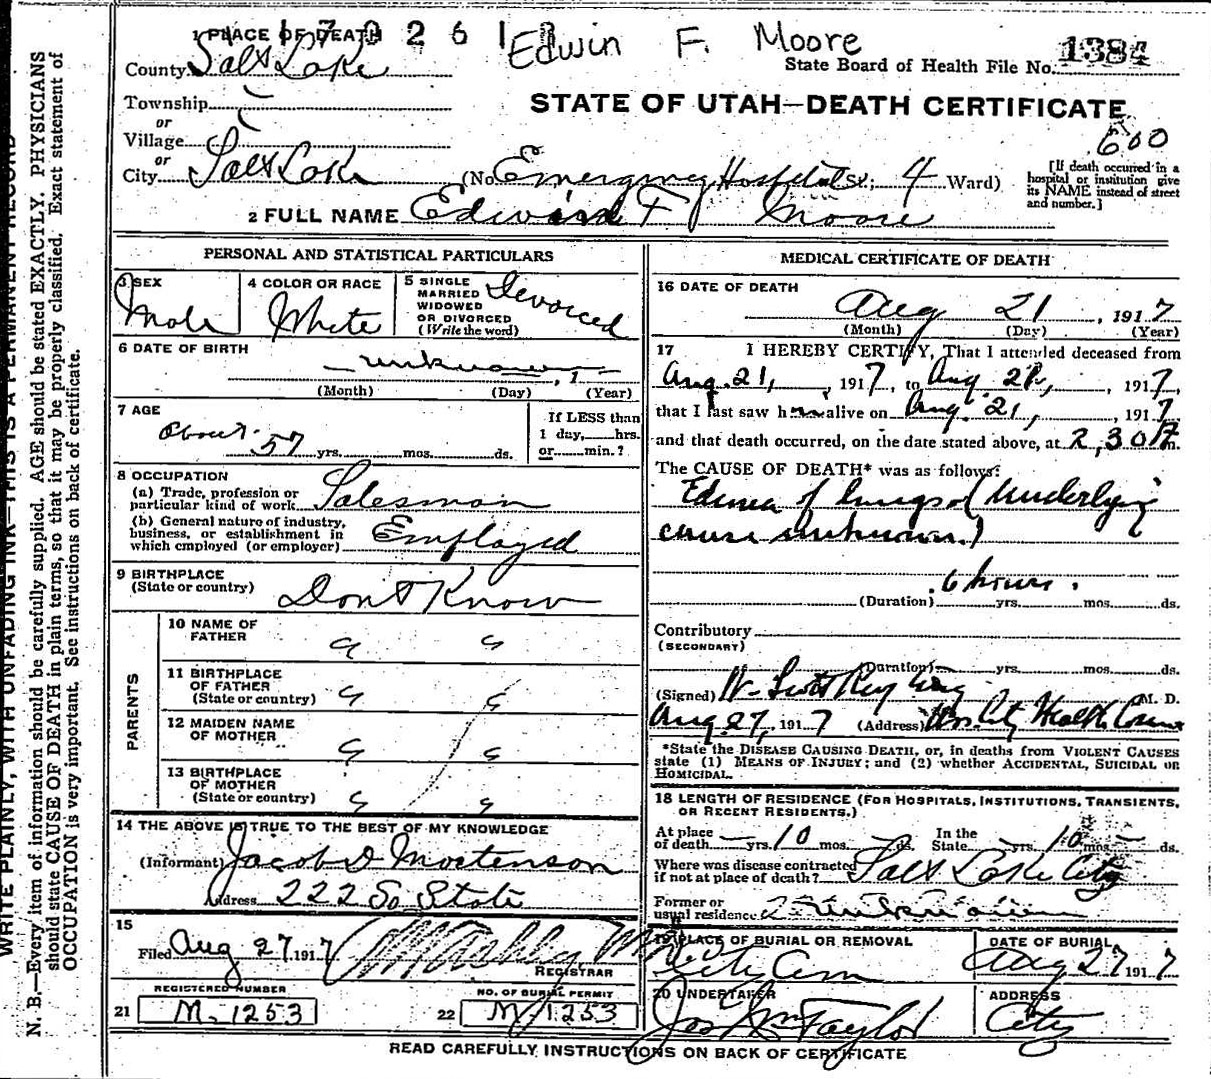 1 PLACE OF DEATH
1702611
Edwin F. Moore
County Salt Lake
State Board of Health File No. 1384
Township
or
STATE OF UTAH—DEATH CERTIFICATE
Village
or
600
City Salt Lake (No. Emergency Hospital St.; 4 Ward)
[If death occurred in a hospital or institution give its NAME instead of street and number.]
2 FULL NAME Edwin F Moore
PERSONAL AND STATISTICAL PARTICULARS
3 SEX
Male
4 COLOR OR RACE
White
5 SINGLE
MARRIED
WIDOWED
OR DIVORCED
(Write the word)
Devorced
6 DATE OF BIRTH
unknown, 1
(Month) (Day) (Year)
7 AGE
about 57 yrs. mos. ds.
If LESS than
1 day, hrs.
or min.?
8 OCCUPATION
(a) Trade, profession or
particular kind of work Salesman
(b) General nature of industry,
business, or establishment in
which employed (or employer) Employed
9 BIRTHPLACE
(State or country)
Dont Know
PARENTS
10 NAME OF
FATHER
11 BIRTHPLACE
OF FATHER
(State or country)
12 MAIDEN NAME
OF MOTHER
13 BIRTHPLACE
OF MOTHER
(State or country)
14 THE ABOVE IS TRUE TO THE BEST OF MY KNOWLEDGE
(Informant) Jacob D Mortenson
Address 222 So State
15
Filed Aug 27 1917
REGISTRAR
REGISTERED NUMBER
21 M-1253
NO. OF BURIAL PERMIT
22 M 1253
MEDICAL CERTIFICATE OF DEATH
16 DATE OF DEATH
Aug 21, 1917
(Month) (Day) (Year)
17 I HEREBY CERTIFY, That I attended deceased from
Aug. 21, 1917, to Aug. 21, 1917,
that I last saw h alive on Aug. 21, 1917
and that death occurred, on the date stated above, at 2,30 m.
The CAUSE OF DEATH* was as follows:
Edema of lungs (Underlying
cause unknown.)
6 hours.
(Duration) yrs. mos. ds.
Contributory
(SECONDARY)
(Duration) yrs. mos. ds.
(Signed) W. Scott Key M. D.
Aug 27, 1917 (Address) City Health
*State the DISEASE CAUSING DEATH, or, in deaths from VIOLENT CAUSES
state (1) MEANS OF INJURY; and (2) whether ACCIDENTAL, SUICIDAL OR
HOMICIDAL.
18 LENGTH OF RESIDENCE (FOR HOSPITALS, INSTITUTIONS, TRANSIENTS,
OR RECENT RESIDENTS.)
At place
of death yrs. 10 mos. ds.
In the
State yrs. 10 mos. ds.
Where was disease contracted
if not at place of death? Salt Lake City
Former or
usual residence unknown
19 PLACE OF BURIAL OR REMOVAL
City Cem
DATE OF BURIAL
Aug 27 1917
20 UNDERTAKER
Jos Wm Taylor
ADDRESS
City
READ CAREFULLY INSTRUCTIONS ON BACK OF CERTIFICATE
WRITE PLAINLY, WITH UNFADING INK—THIS IS A PERMANENT RECORD
N. B.—Every item of information should be carefully supplied. AGE should be stated EXACTLY. PHYSICIANS
should state CAUSE OF DEATH in plain terms, so that it may be properly classified. Exact statement of
OCCUPATION is very important. See instructions on back of certificate.